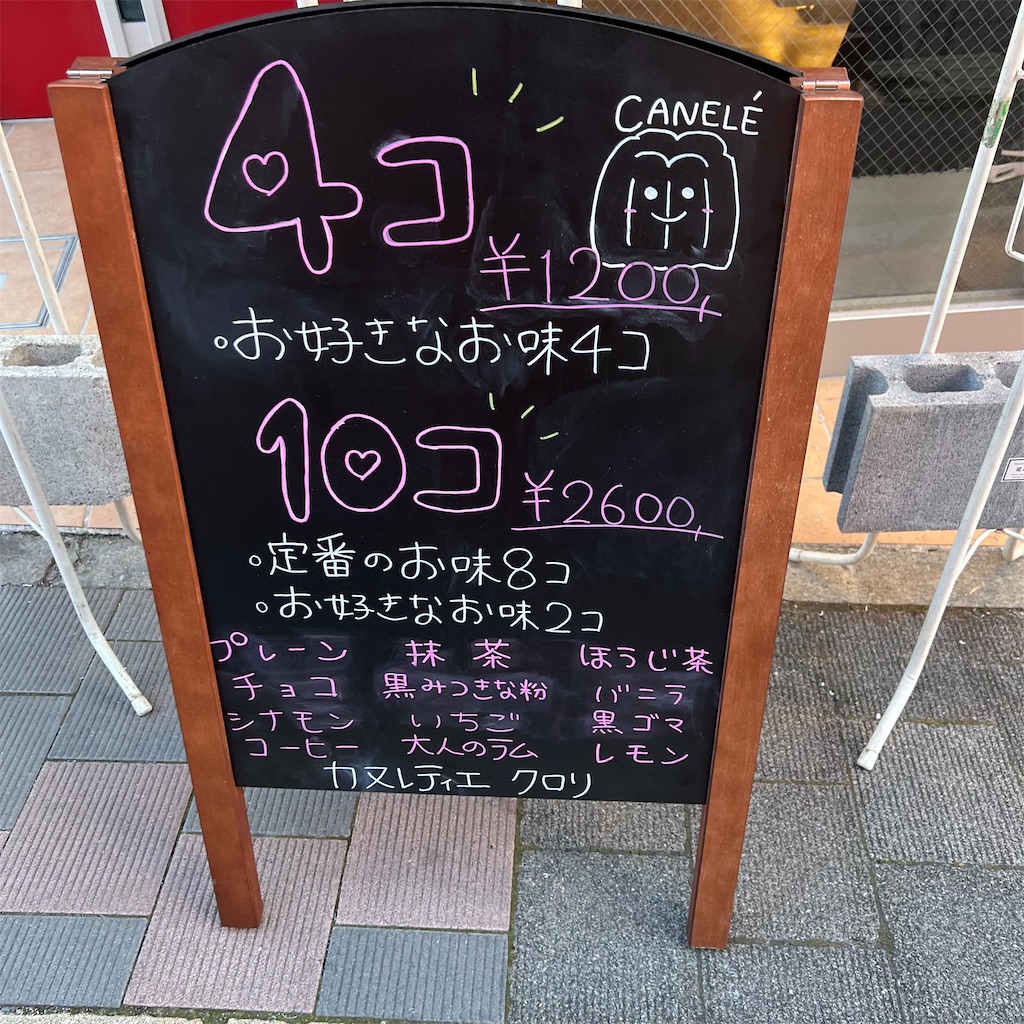 CANELÉ
4コ
¥1200,
。お好きなお味4コ
10コ
¥2600,
。定番のお味8コ
。お好きなお味2コ
プレーン 抹茶 ほうじ茶
チョコ 黒みつきな粉 バニラ
シナモン いちご 黒ゴマ
コーヒー 大人のラム レモン
カヌレティエ クロリ